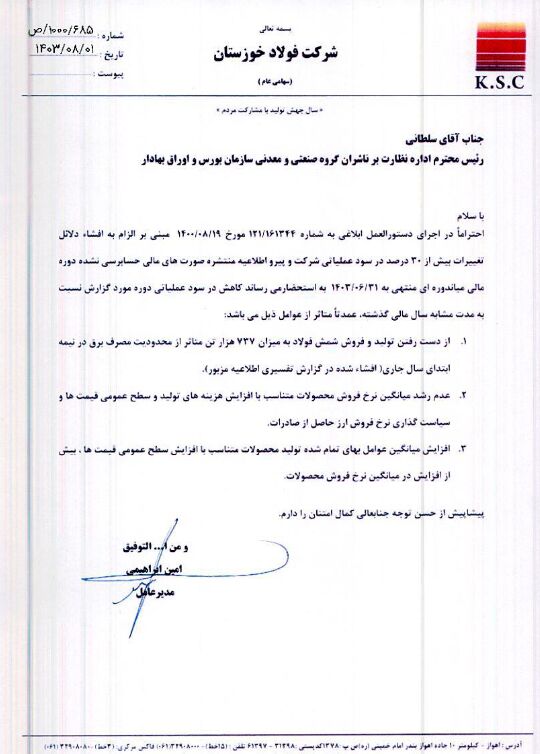 بسمه تعالی
شرکت فولاد خوزستان
(سهامی عام)
شماره : ۱۰۰۰/۶۸۵/ص
تاریخ : ۱۴۰۳/۰۸/۰۱
پیوست :
K.S.C
« سال جهش تولید با مشارکت مردم »
جناب آقای سلطانی
رئیس محترم اداره نظارت بر ناشران گروه صنعتی و معدنی سازمان بورس و اوراق بهادار
با سلام
احتراماً در اجرای دستورالعمل ابلاغی به شماره ۱۲۱/۱۶۱۳۴۴ مورخ ۱۴۰۰/۰۸/۱۹ مبنی بر الزام به افشاء دلائل
تغییرات بیش از ۳۰ درصد در سود عملیاتی شرکت و پیرو اطلاعیه منتشره صورت های مالی حسابرسی نشده دوره
مالی میاندوره ای منتهی به ۱۴۰۳/۰۶/۳۱ به استحضارمی رساند کاهش در سود عملیاتی دوره مورد گزارش نسبت
به مدت مشابه سال مالی گذشته، عمدتاً متاثر از عوامل ذیل می باشد:
۱. از دست رفتن تولید و فروش شمش فولاد به میزان ۷۳۷ هزار تن متاثر از محدودیت مصرف برق در نیمه
ابتدای سال جاری( افشاء شده در گزارش تفسیری اطلاعیه مزبور).
۲. عدم رشد میانگین نرخ فروش محصولات متناسب با افزایش هزینه های تولید و سطح عمومی قیمت ها و
سیاست گذاری نرخ فروش ارز حاصل از صادرات.
۳. افزایش میانگین عوامل بهای تمام شده تولید محصولات متناسب با افزایش سطح عمومی قیمت ها ، بیش
از افزایش در میانگین نرخ فروش محصولات.
پیشاپیش از حسن توجه جنابعالی کمال امتنان را دارم.
و من ا... التوفیق
امین ابراهیمی
مدیرعامل
آدرس : اهواز - کیلومتر ۱۰ جاده اهواز بندر امام خمینی (ره)ص پ ۱۳۷۸کدپستی :۳۱۳۹۸ - ۶۱۳۹۷ تلفن : (۱۵خط) ۳۲۹۰۸۰۰۰(۰۶۱) فاکس مرکزی: (۳خط) ۳۲۹۰۸۰۸۰ (۰۶۱)